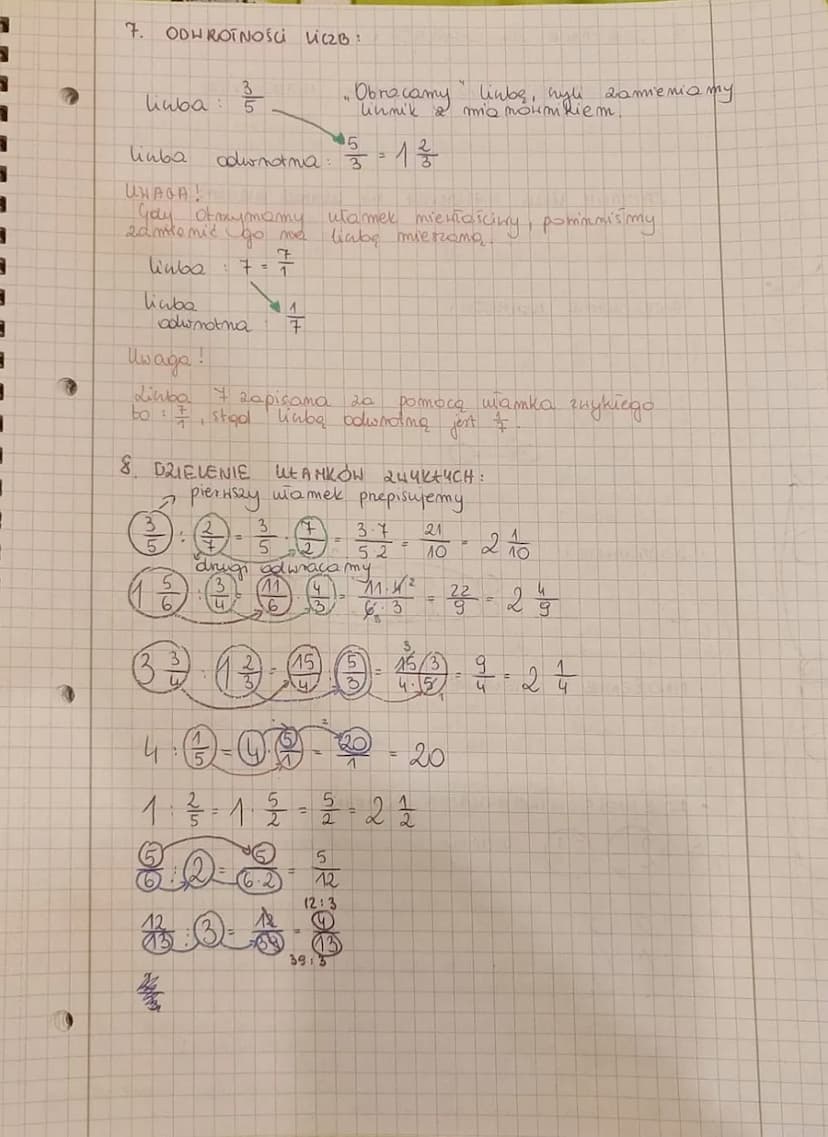 7. ODWROTNOŚCI LICZB:
liczba : 3/5
"Obracamy" liczbę, czyli zamieniamy
licznik z mianownikiem.
liczba odwrotna : 5/3 = 1 2/3
UWAGA!
Gdy otrzymamy ułamek niewłaściwy, powinniśmy
zamienić go na liczbę mieszaną.
liczba : 7 = 7/1
liczba
odwrotna : 1/7
Uwaga!
Liczba 7 zapisana za pomocą ułamka zwykłego
to : 7/1, stąd liczbą odwrotną jest 1/7.
8. DZIELENIE UŁAMKÓW ZWYKŁYCH:
pierwszy ułamek przepisujemy
3/5 : 2/7 = 3/5 · 7/2 = 3·7/5·2 = 21/10 = 2 1/10
drugi odwracamy
1 5/6 : 3/4 = 11/6 · 4/3 = 11·4 2/6 3·3 = 22/9 = 2 4/9
3 3/4 : 1 2/3 = 15/4 : 5/3 = 3 15·3/4·5 1 = 9/4 = 2 1/4
4 : 1/5 = 4 · 5/1 = 20/1 = 20
1 : 2/5 = 1 · 5/2 = 5/2 = 2 1/2
5/6 : 2 = 5/6·2 = 5/12
12:3
12/13 : 3 = 12/39 = 4/13
39:3